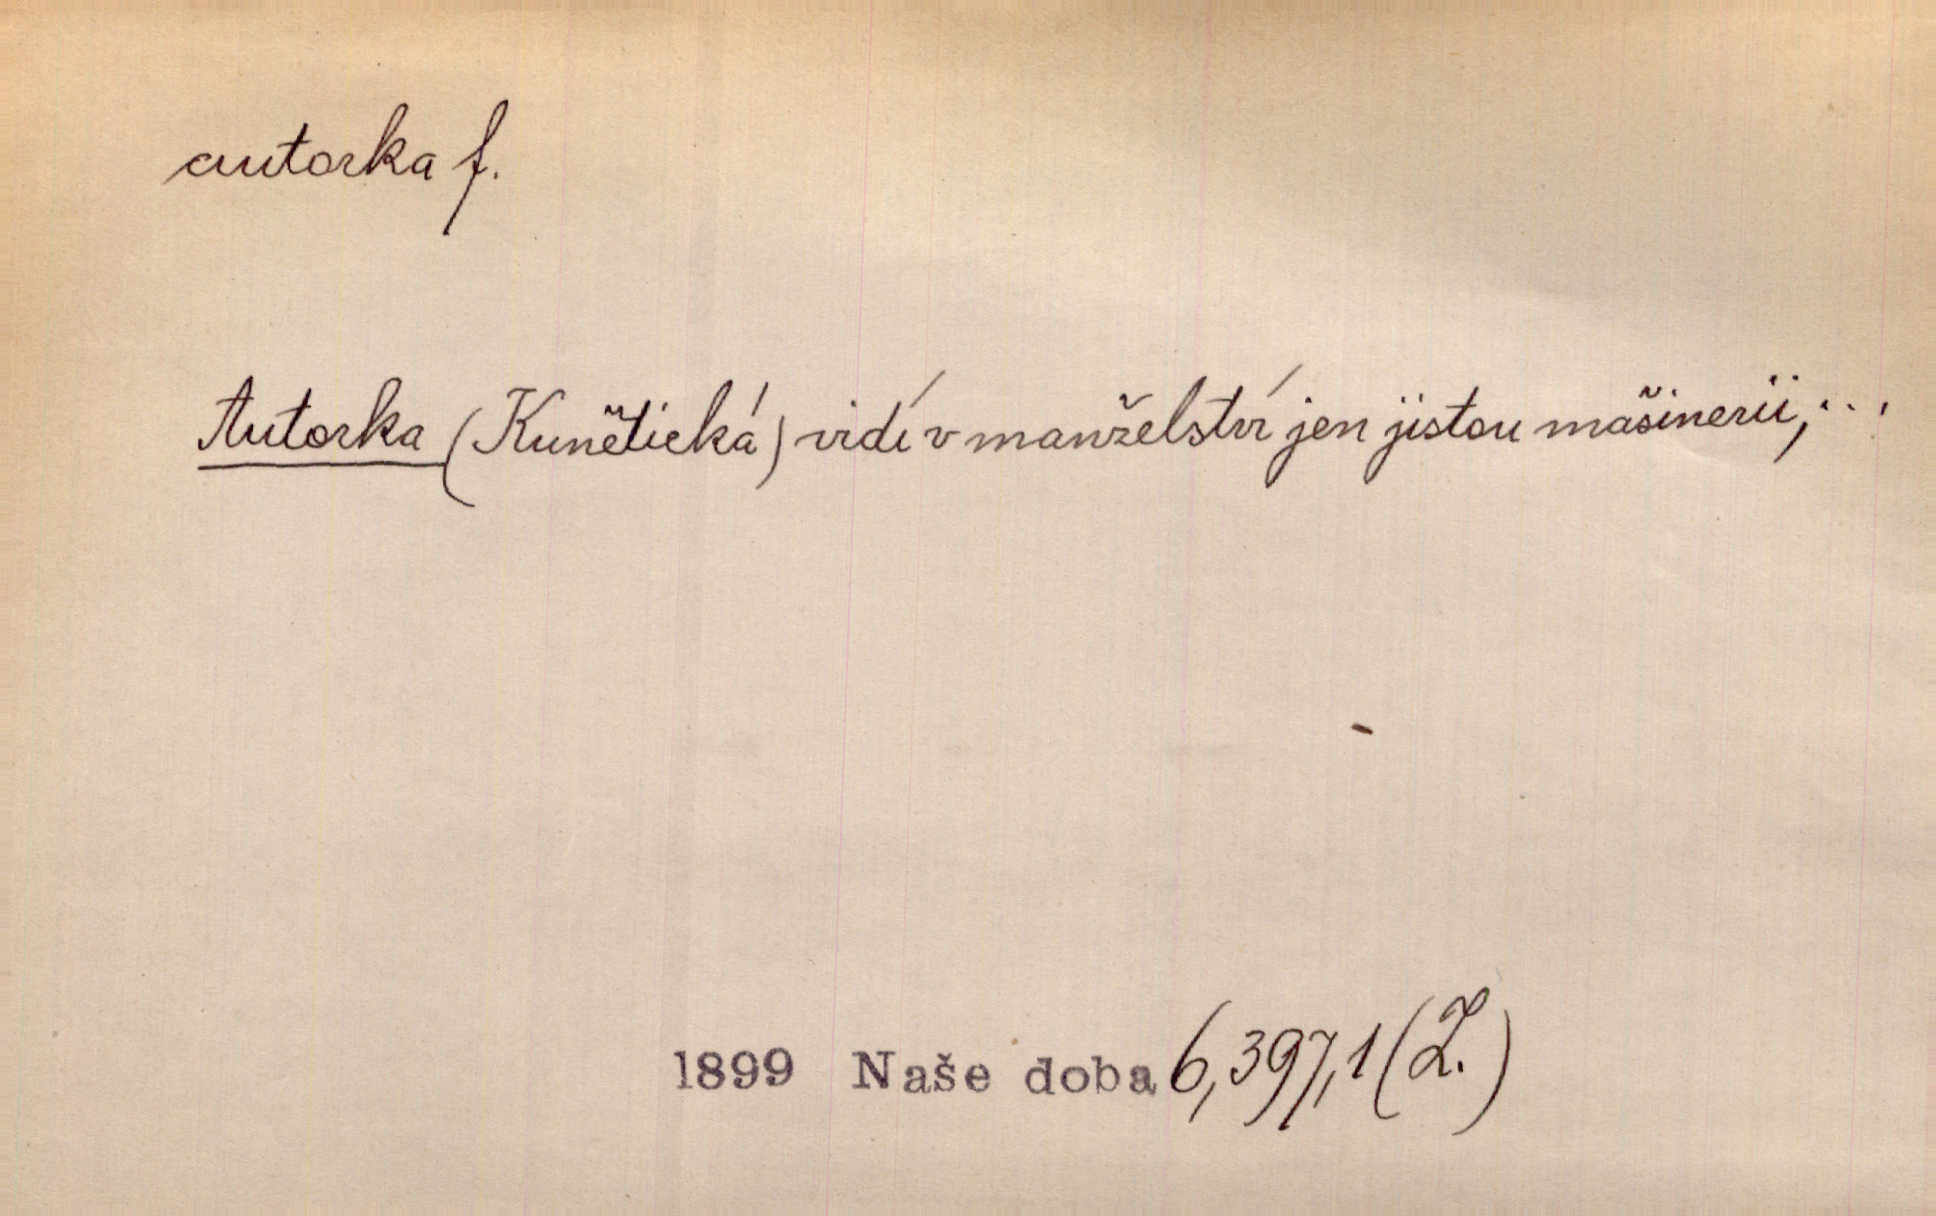 autorka f.
Autorka (Kunětická) vidí v manželství jen jistou mašinerii, ...
1899 Naše doba 6, 397, 1 (Z.)